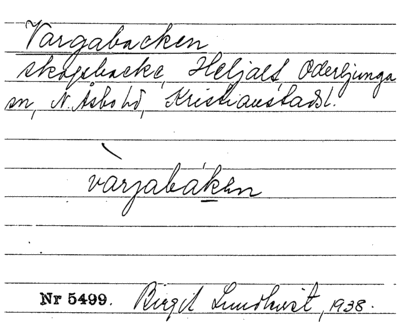 Vargabacken
skogsbacke, Heljalt, Oderljunga
sn, N. Åsbo hd, Kristianstads l.
varjabákɛn
Nr 5499. Birgit Lundkvist, 1938.